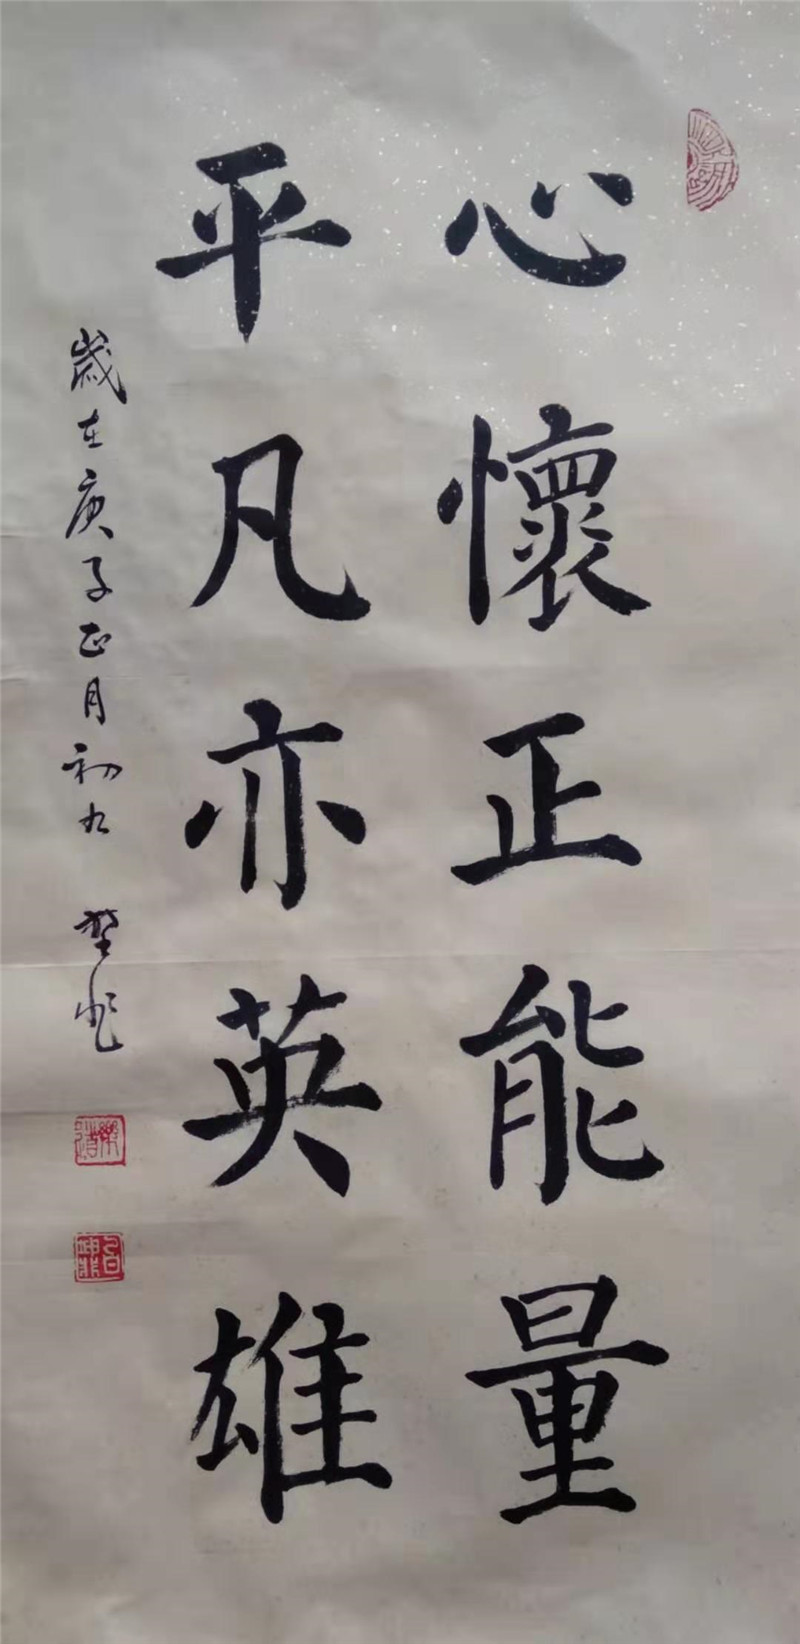 心懷正能量
平凡亦英雄
歲在庚子正月初九